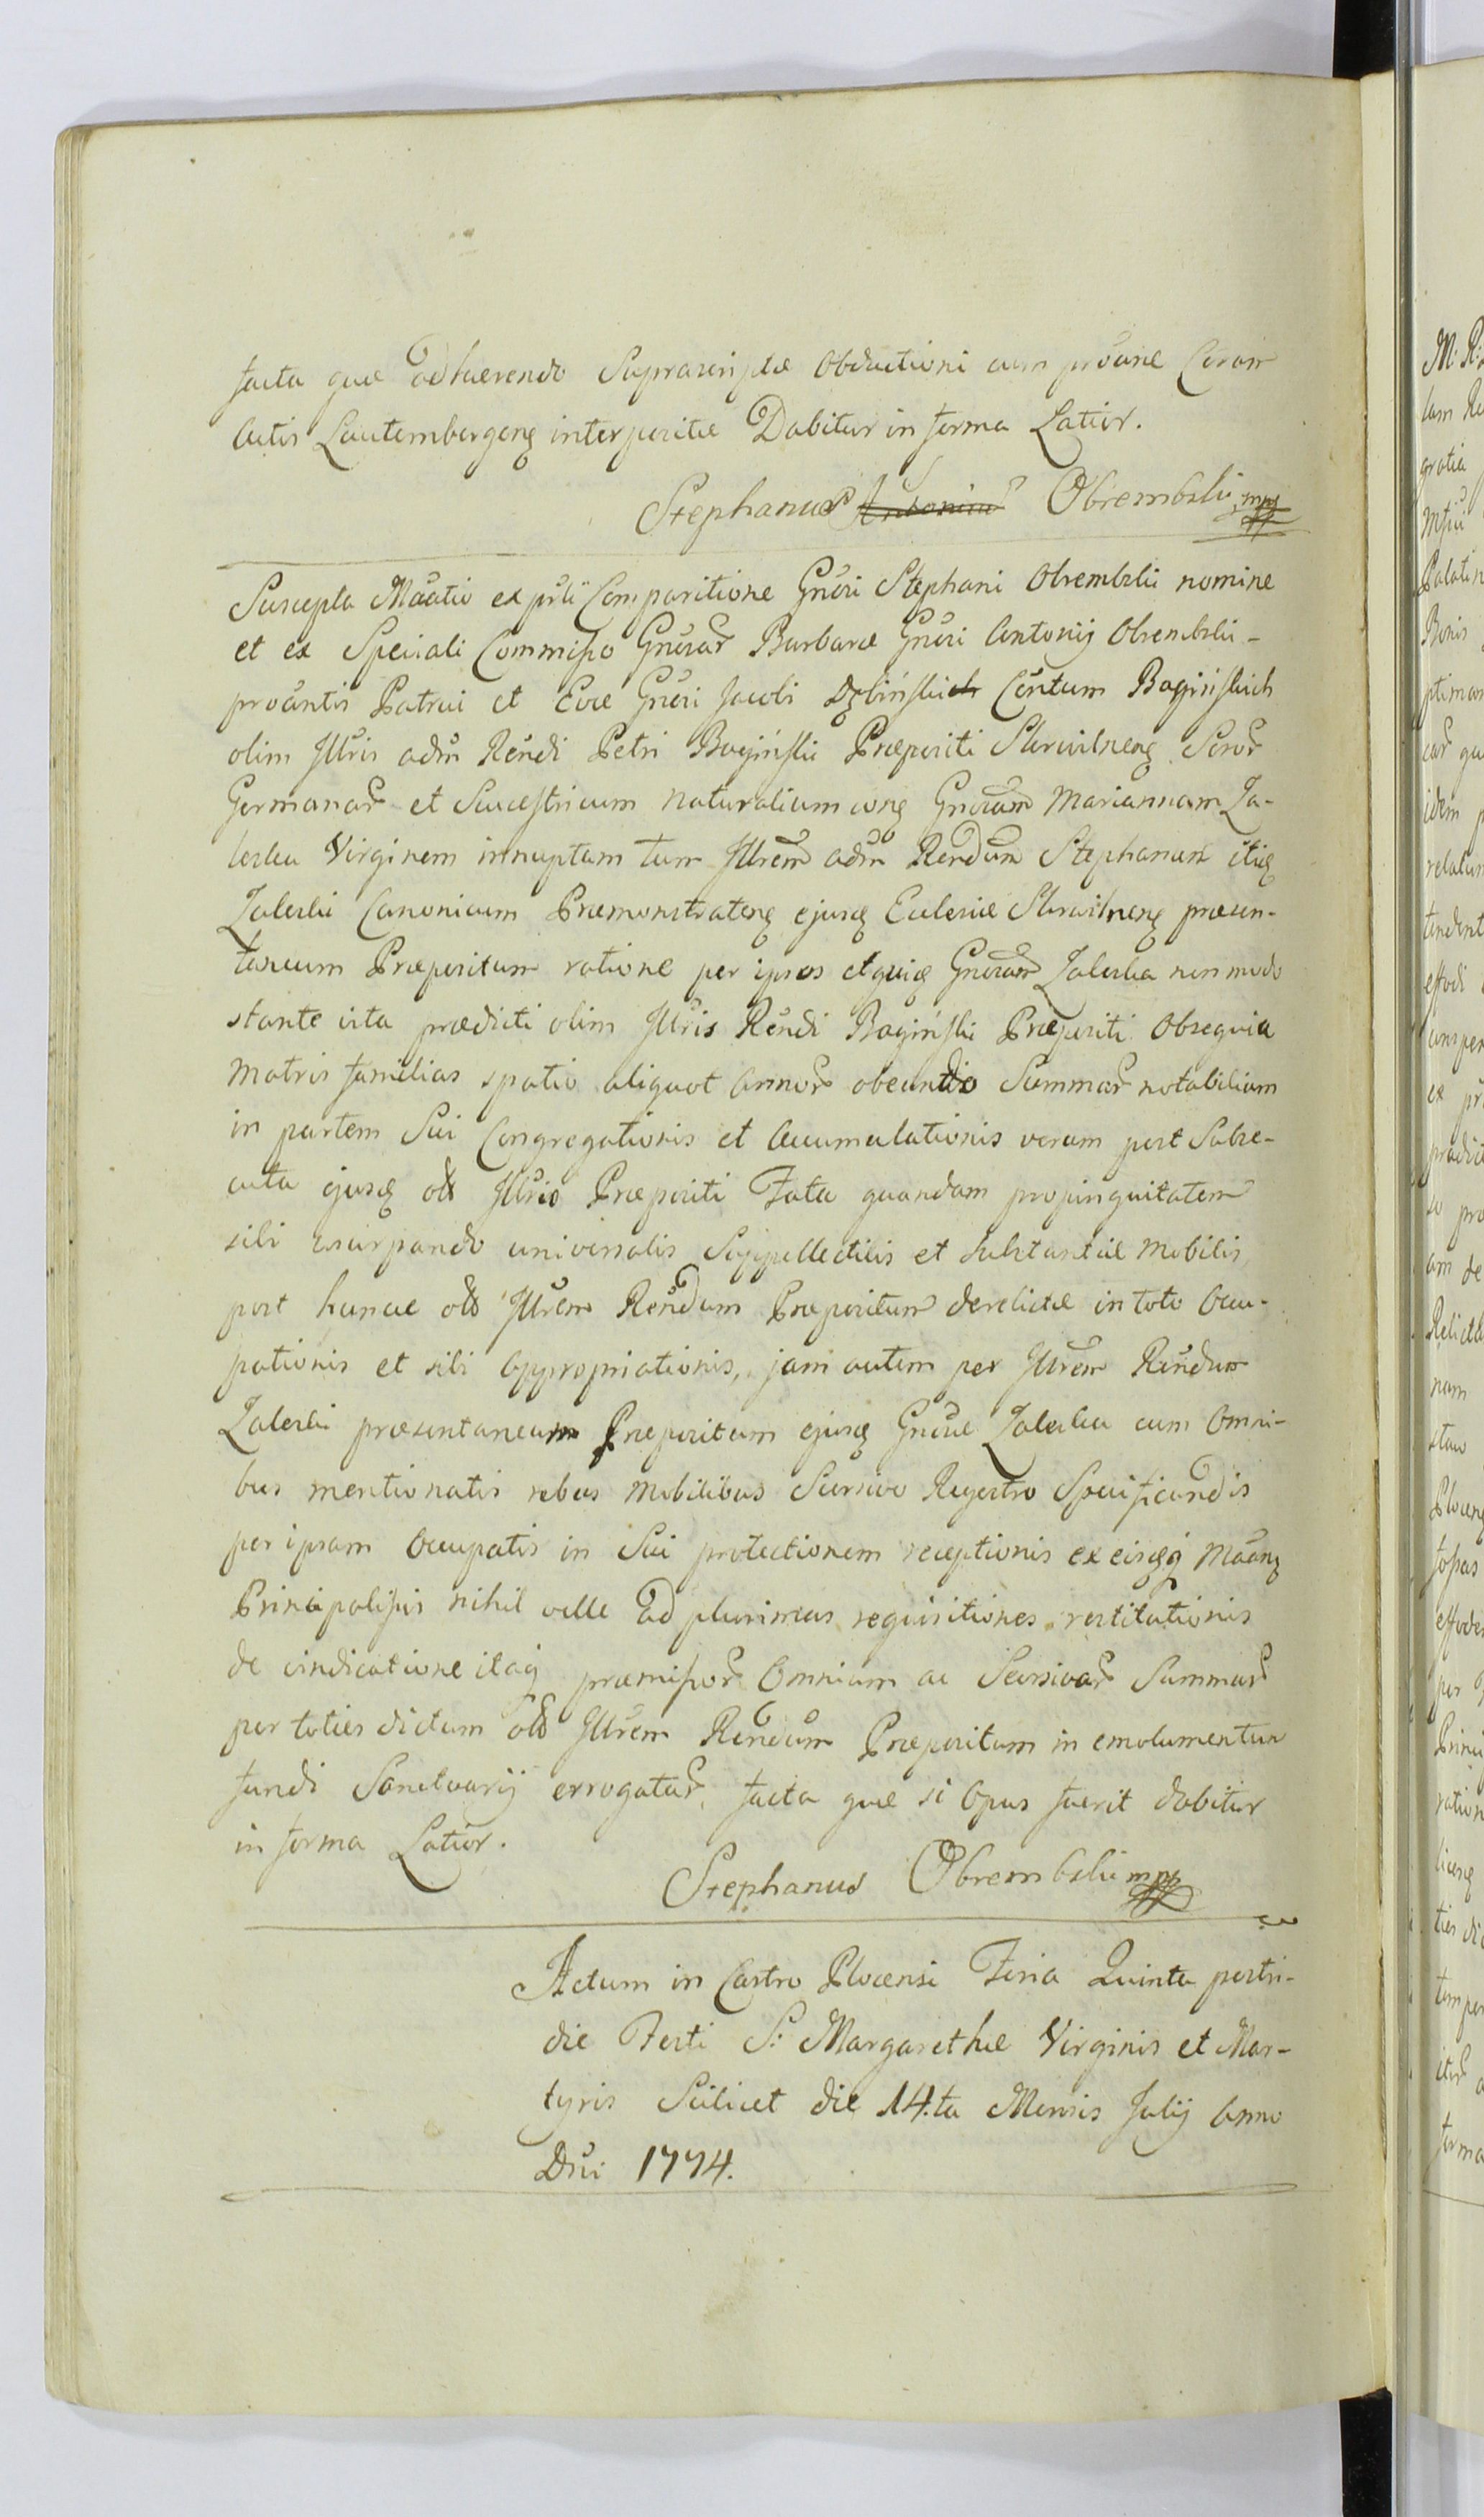 facta quae adhaerendo Suprascriptae Obductioni cum prõane Coram
Actis Lautembergenę interpositae Dabitur in forma Latior.
Stephanus Antonius Obrembski mp
Suscepta Mãatio ex prñli Comparitione Gnõri Stephani Obrembski nomine
et ex Speciali Commisso Gnõrar Barbarae Gnõri Antonij Obrembski -
proãntis Patrui et Evae Gnõri Jacobi Dębińskich Cõntum Bagińskich
olim Jllris adm̃ Rẽndi Petri Bagiński Praepositi Skrwilnenę Soror
Germanar et Successtricum naturalium cong Gnõram Mariannam Za-
leska Virginem innuptam tum Jllrem adm̃ Rẽndum Stephanum itię
Zaleski Canonicum Praemonstratenę ejusę Ecclesiae Skrwilnenę praesen-
taneum Praepositum ratione per ipsos et quię Gnõram Zaleska non modo
stante vita praedicti olim Jllris Rẽndi Bagiński Praepositi Obsequia
Matris familias spatio aliquot Annor obeundo Summar notabilium
in partem Sui Congregationis et Accumulationis verum post Subse-
cuta ejusę olt Jllris Praepositi Fata quandam propinquitatem
sibi usurpando universalis Suppellectilis et Substantiae Mobilis
post huncce olt Jllrem Rẽndum Praepositum derelictae in toto Occu-
pationis et sibi Appropriationis, jam autem per Jllrem Rẽndum
Zaleski praesentaneum Praepositum ejusę Gnõrae Zaleska cum Omni-
bus mentionatis rebus Mobilibus Seorsivo Regestro Specificandis
per ipsam Occupatis in Sui protectionem receptionis ex eisqę Mãanę
Principalibus nihil velle ad plurimas requisitiones restitutionis
de vindicatione itaq praemissor Omnium ac Seorsivar Summar
per toties dictum olt Jllrem Rẽndum Praepositum in emolumentum
fundi Sanctuarij errogatar, facta quae si Opus fuerit dabitur
in forma Latior.
Stephanus Obrembski mp
Actum in Castro Plocensi Feria Quinta postri-
die Festi S: Margarethae Virginis et Mar-
tyris Scilicet die 14.ta Mensis Julij Anno
Dñi 1774.